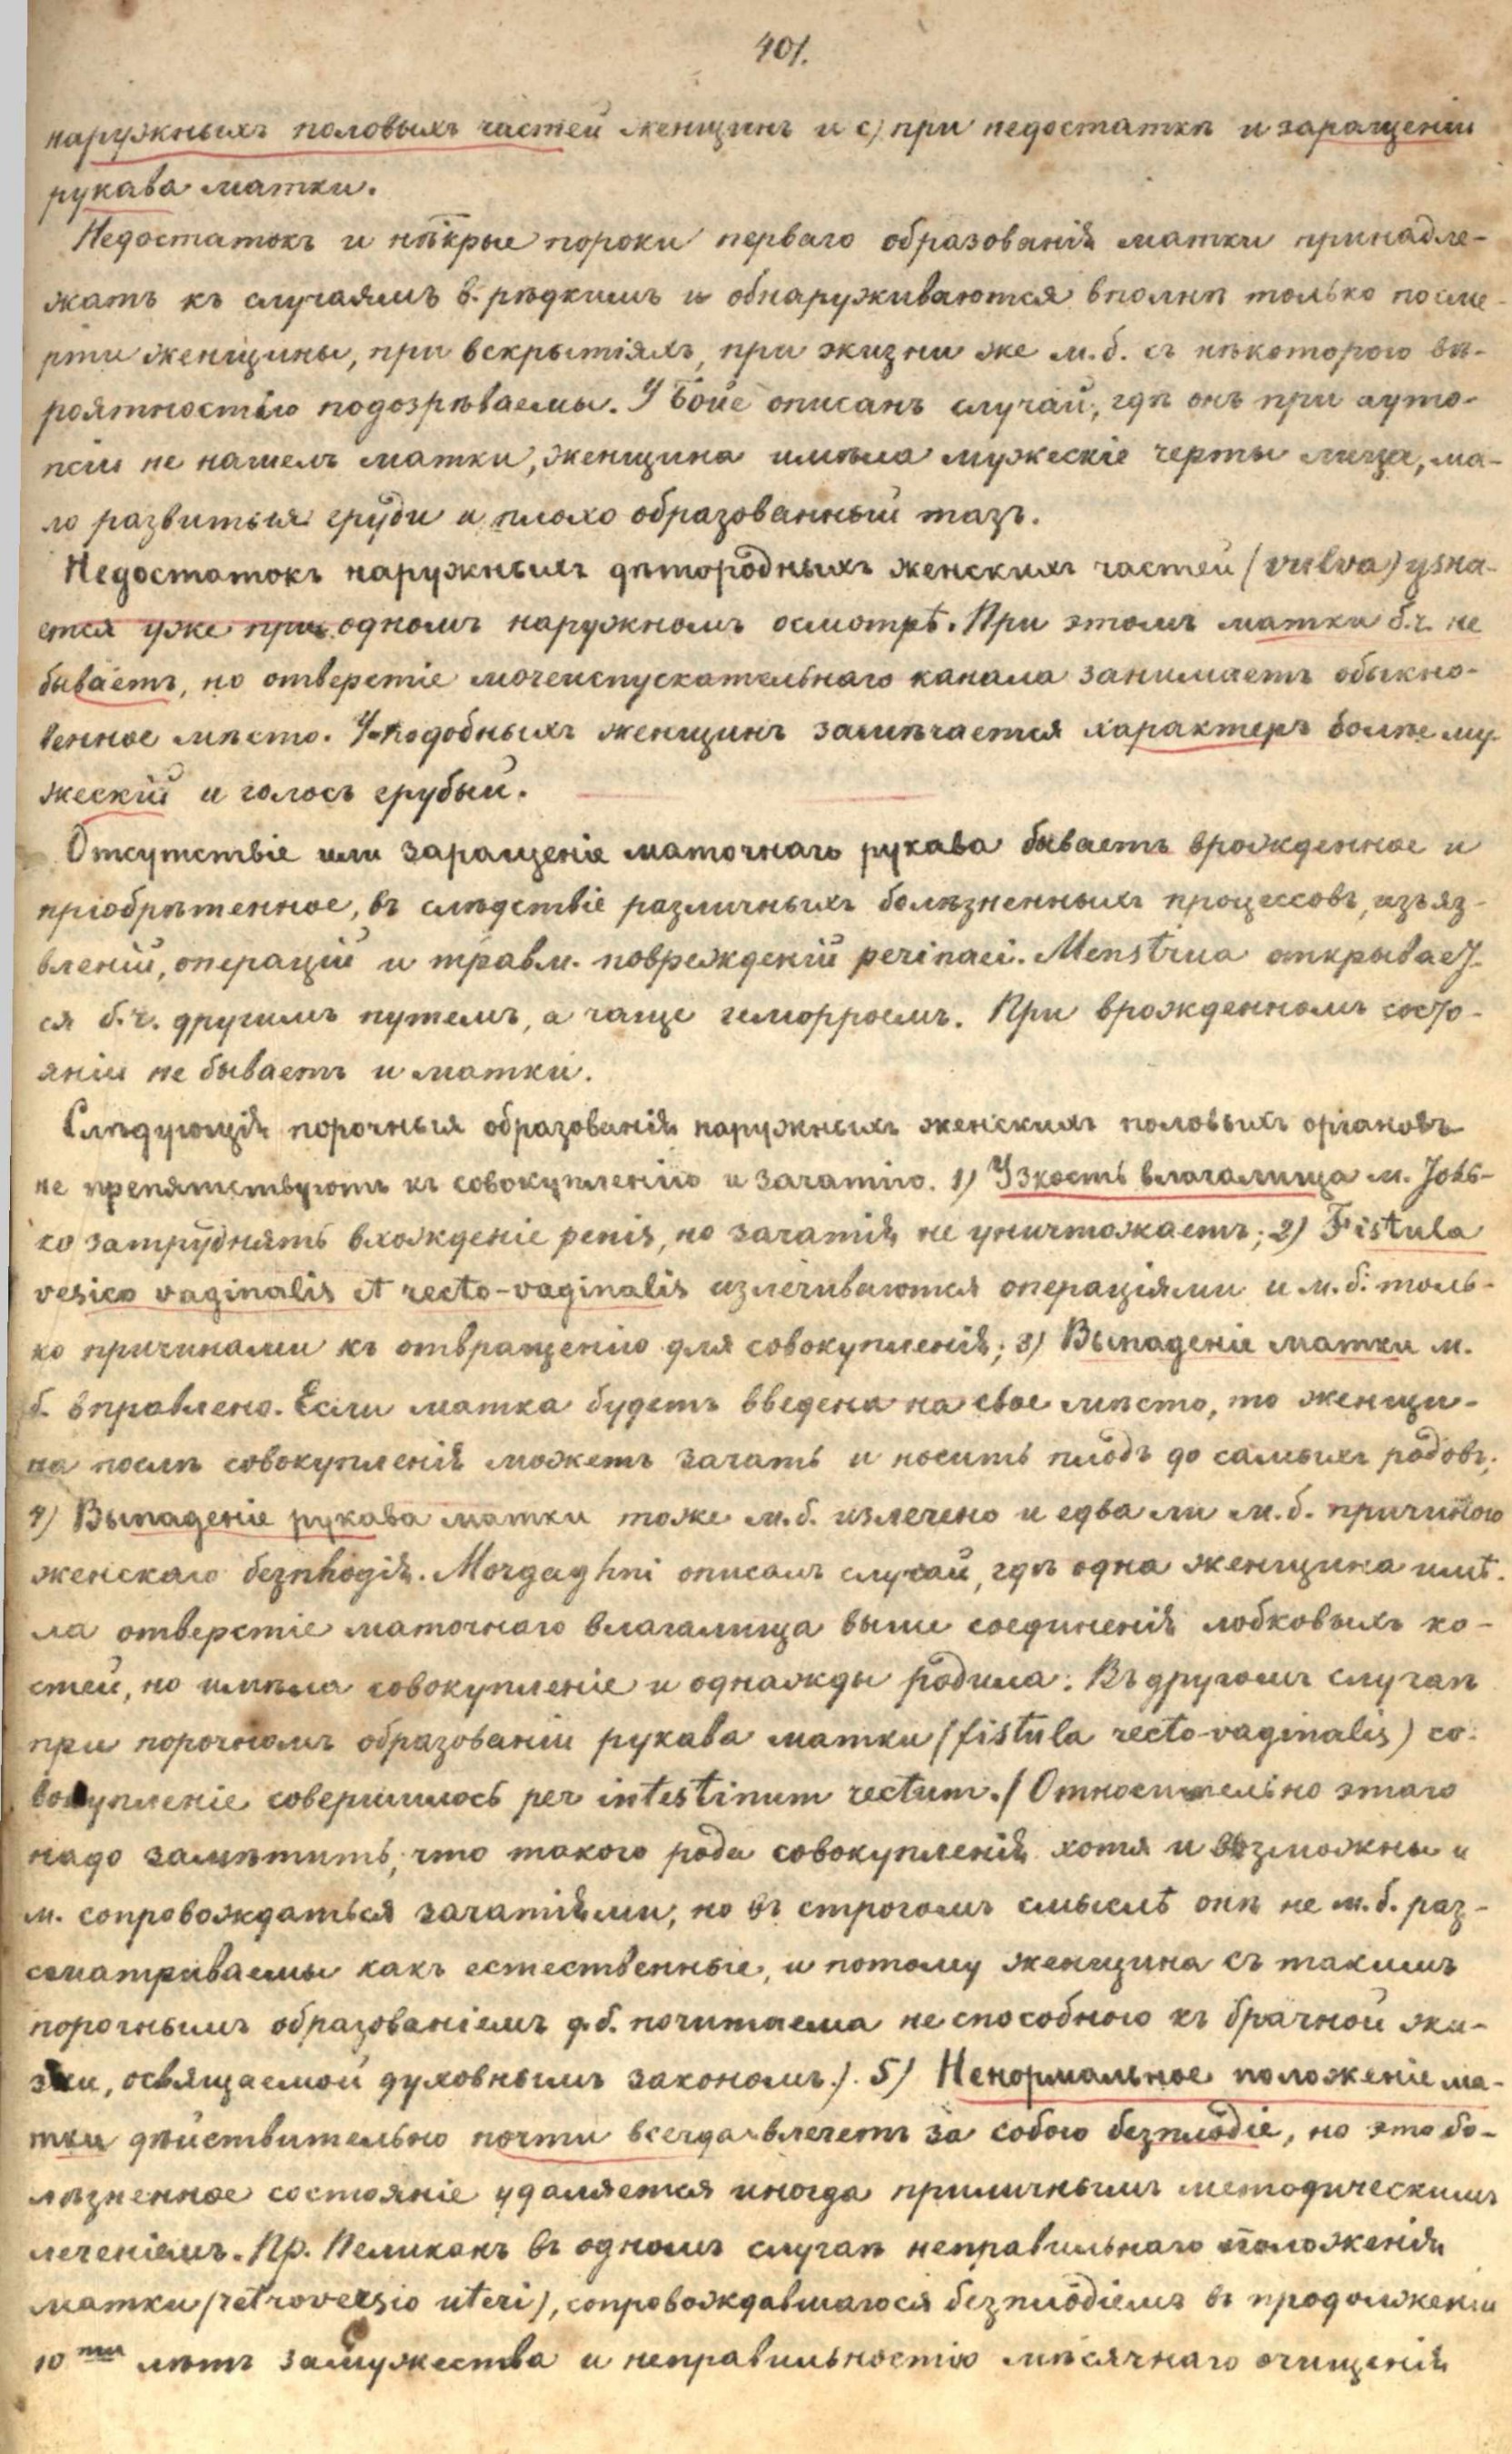 401.
наружныхъ половыхъ частей женщинъ и с) при недостаткѣ и заращеніи
рукава матки.
Недостатокъ и нѣкрые пороки перваго образованія матки принадле-
жатъ къ случаямъ в. рѣдкимъ и обнаруживаются вполнѣ только посме-
рти женщины, при вскрытіяхъ, при жизни же м. б. съ нѣкоторого вѣ-
роятностію подозрѣваемы. У Бойе описанъ случай, гдѣ онъ при ауто-
псіи не нашелъ матки, женщина имѣла мужескіе черты лица, ма-
ло развитыя груди и плохо образованный тазъ.
Недостатокъ наружныхъ дѣтородныхъ женскихъ частей (vulva) узна-
ется уже при одномъ наружномъ осмотрѣ. При этомъ матки б. ч. не
бываетъ, но отверстіе мочеиспускательнаго канала занимаетъ обыкно-
венное мѣсто. У подобныхъ женщинъ замѣчается характеръ болѣе му-
жескій и голосъ грубый.
Отсутствіе или заращеніе маточнаго рукава бываетъ врожденное и
пріобрѣтенное, въ слѣдствіе различныхъ болѣзненныхъ процессовъ, изъяз-
вленій, операцій и травм. поврежденій perinaei. Menstrua открывает-
ся б. ч. другимъ путемъ, а чаще геморроемъ. При врожденномъ состо-
яніи не бываетъ и матки.
Слѣдующія порочныя образованія наружныхъ женскихъ половыхъ органовъ
не препятствуютъ къ совокупленію и зачатію. 1) Узкость влагалища м. толь-
ко затруднять вхожденіе penis, но зачатія не уничтожаетъ; 2) Fistula
vesico vaginalis et recto-vaginalis излечиваются операціями и м. б. толь-
ко причинами къ отвращенію для совокупленія; 3) Выпаденіе матки м.
б. вправлено. Если матка будетъ введена на свое мѣсто, то женщи-
на послѣ совокупленія можетъ зачать и носить плодъ до самыхъ родовъ;
4) Выпаденіе рукава матки тоже м. б. излечено и едва ли м. б. причиною
женскаго безплодія. Morgaghni описалъ случай, гдѣ одна женщина имѣ-
ла отверстіе маточнаго влагалища выше соединенія лобковыхъ ко-
стей, но имѣла совокупленіе и однажды родила. Въ другомъ случаѣ
при порочномъ образованіи рукава матки (fistula recto-vaginalis) со-
вокупленіе совершилось per intestinum rectum. (Относительно этаго
надо замѣтить, что такого рода совокупленія хотя и возможны и
м. сопровождаться зачатіями, но въ строгомъ смыслѣ онѣ не м. б. раз-
сматриваемы какъ естественные, и потому женщина съ такимъ
порочнымъ образованіемъ д. б. почитаема неспособною къ брачной жи-
зни, освящаемой духовнымъ закономъ.) 5) Ненормальное положеніе ма-
тки дѣйствительно почти всегда влечетъ за собою безплодіе, но это бо-
лѣзненное состояніе удаляется иногда приличнымъ методическимъ
леченіемъ. Пр. Пеликанъ въ одномъ случаѣ неправильнаго положенія
матки (retroversio uteri), сопровождавшагося безплодіемъ въ продолженіи
10ти лѣтъ замужества и неправильностію мѣсячнаго очищенія